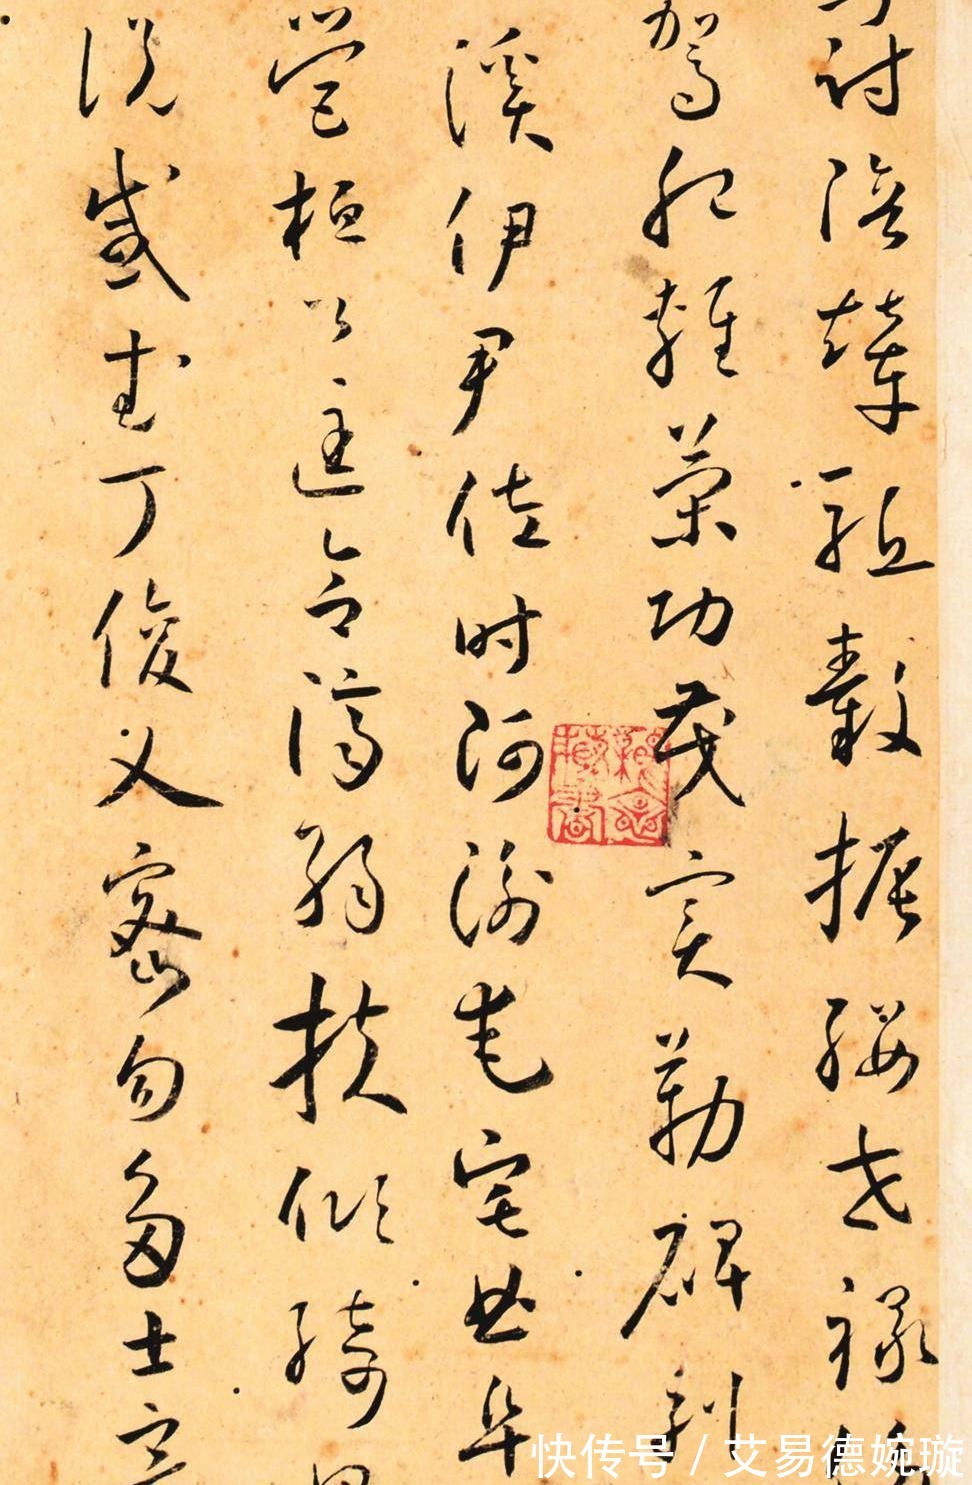 冠陪輦驅轂振纓世祿
駕肥輕策功茂實勒碑刻
溪伊尹佐時阿衡奄宅曲阜
營桓公匡合濟弱扶傾綺
說感武丁俊乂密勿多士寔
快传号 / 艾易德婉璇